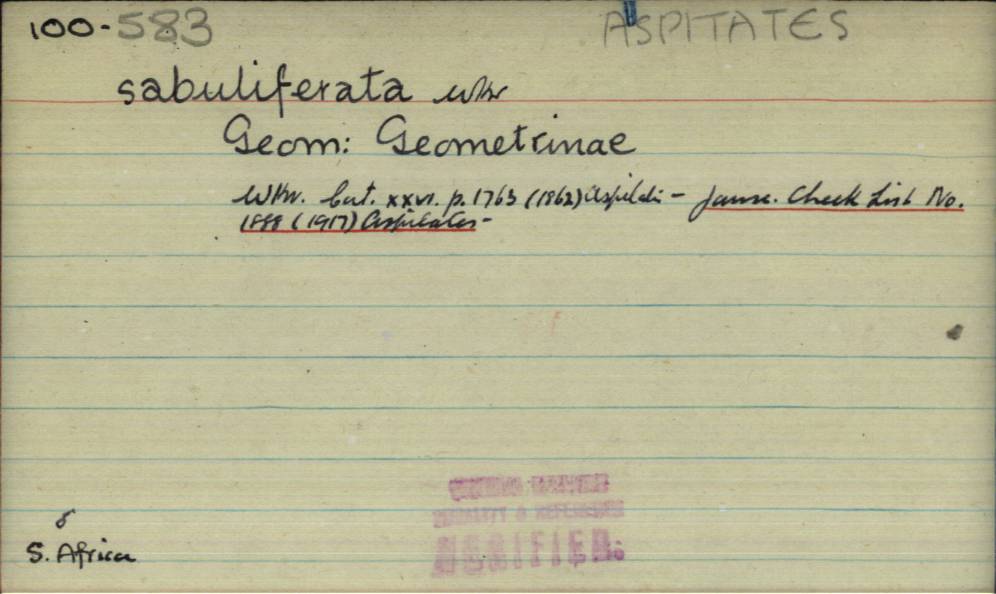 100-583 ASPITATES
sabuliferata Wkr
Geom: Geometrinae
Wkr. Cat. xxvi. p. 1763 (1862) Aspilates - Janse. Check List No.
1888 (1917) Aspilates -
LOCALITY & REFERENCE
VERIFIED
♂
S. Africa